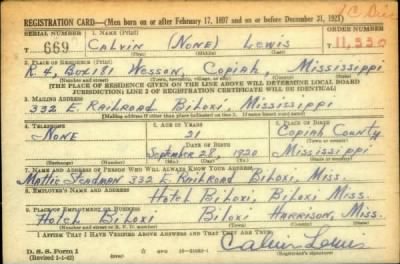 REGISTRATION CARD—(Men born on or after February 17, 1897 and on or before December 31, 1921)
SERIAL NUMBER 1. NAME (Print) ORDER NUMBER
T 669 CALVIN (NONE) LEWIS 11,330
(First) (Middle) (Last)
2. PLACE OF RESIDENCE (Print)
R 4, BOX 181 WESSON, COPIAH, MISSISSIPPI
(Number and street) (Town, township, village, or city) (County) (State)
[THE PLACE OF RESIDENCE GIVEN ON THE LINE ABOVE WILL DETERMINE LOCAL BOARD
JURISDICTION; LINE 2 OF REGISTRATION CERTIFICATE WILL BE IDENTICAL]
3. MAILING ADDRESS
332 E. RAILROAD BILOXI, MISSISSIPPI
[Mailing address if other than place indicated on line 2. If same insert word same]
4. TELEPHONE 5. AGE IN YEARS 6. PLACE OF BIRTH
NONE 21 COPIAH COUNTY
DATE OF BIRTH (Town or county)
SEPTEMBER 28, 1920 MISSISSIPPI
(Exchange) (Number) (Mo.) (Day) (Yr.) (State or country)
7. NAME AND ADDRESS OF PERSON WHO WILL ALWAYS KNOW YOUR ADDRESS
MATTIE STEADMAN 332 E RAILROAD BILOXI, MISS.
8. EMPLOYER'S NAME AND ADDRESS
HOTEL BILOXI, BILOXI, MISS.
9. PLACE OF EMPLOYMENT OR BUSINESS
HOTEL BILOXI BILOXI HARRISON, MISS.
(Number and street or R. F. D. number) (Town) (County) (State)
I AFFIRM THAT I HAVE VERIFIED ABOVE ANSWERS AND THAT THEY ARE TRUE.
D. S. S. Form 1 Calvin Lewis
(Revised 1-1-42) (over) (Registrant's signature)